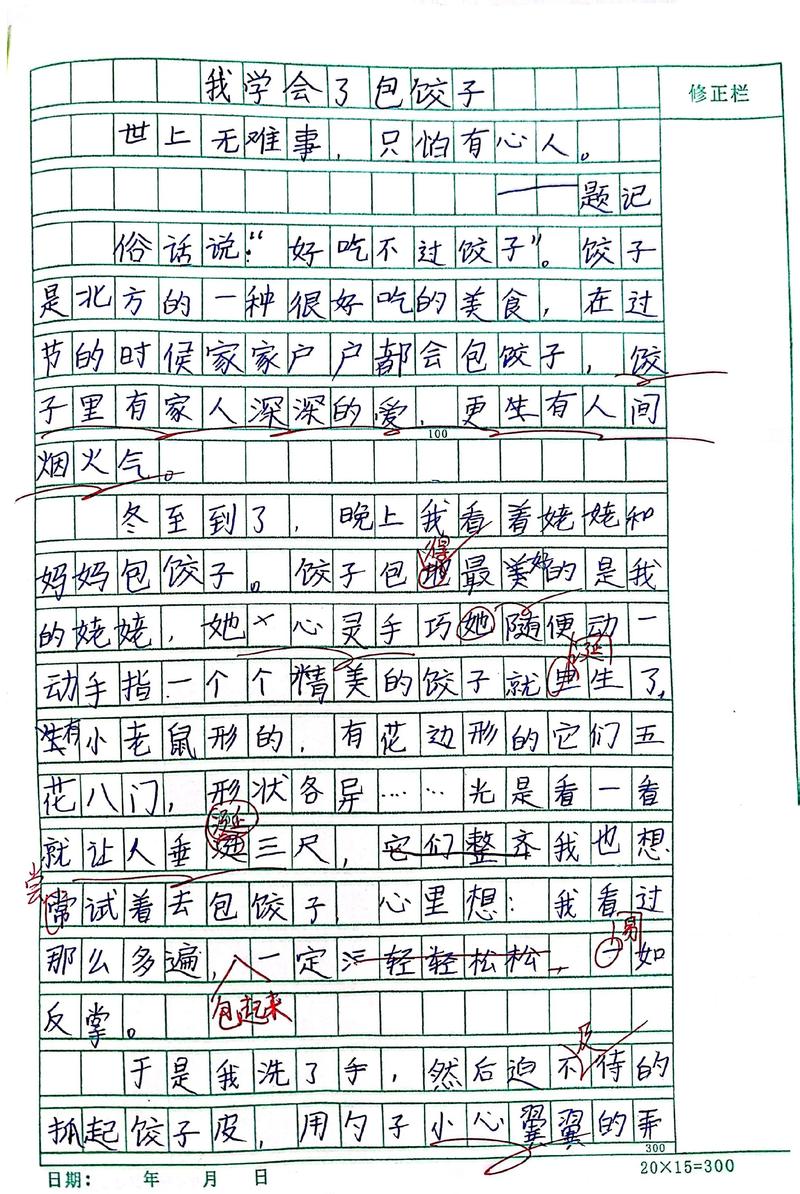 我学会了包饺子
修正栏
世上无难事，只怕有心人。
——题记
俗话说：“好吃不过饺子”。饺子
是北方的一种很好吃的美食，在过
节的时候家家户户都会包饺子，饺
子里有家人深深的爱，更生有人间
100
烟火气。
冬至到了，晚上我看着姥姥和
得
妈妈包饺子。饺子包地最美妙的是我
的姥姥，她心灵手巧她随便动一
诞
动手指一个个精美的饺子就生了，
有小老鼠形的，有花边形的它们五
花八门，形状各异……光是看一看
涎
就让人垂三尺，它们整齐我也想
尝
常试着去包饺子，心里想：我看过
易
那么多遍，一定轻轻松松，一如
包起来
反掌。
及
于是我洗了手，然后迫不待的
抓起饺子皮，用勺子小心翼翼的弄
300
日期： 年 月 日
20×15=300